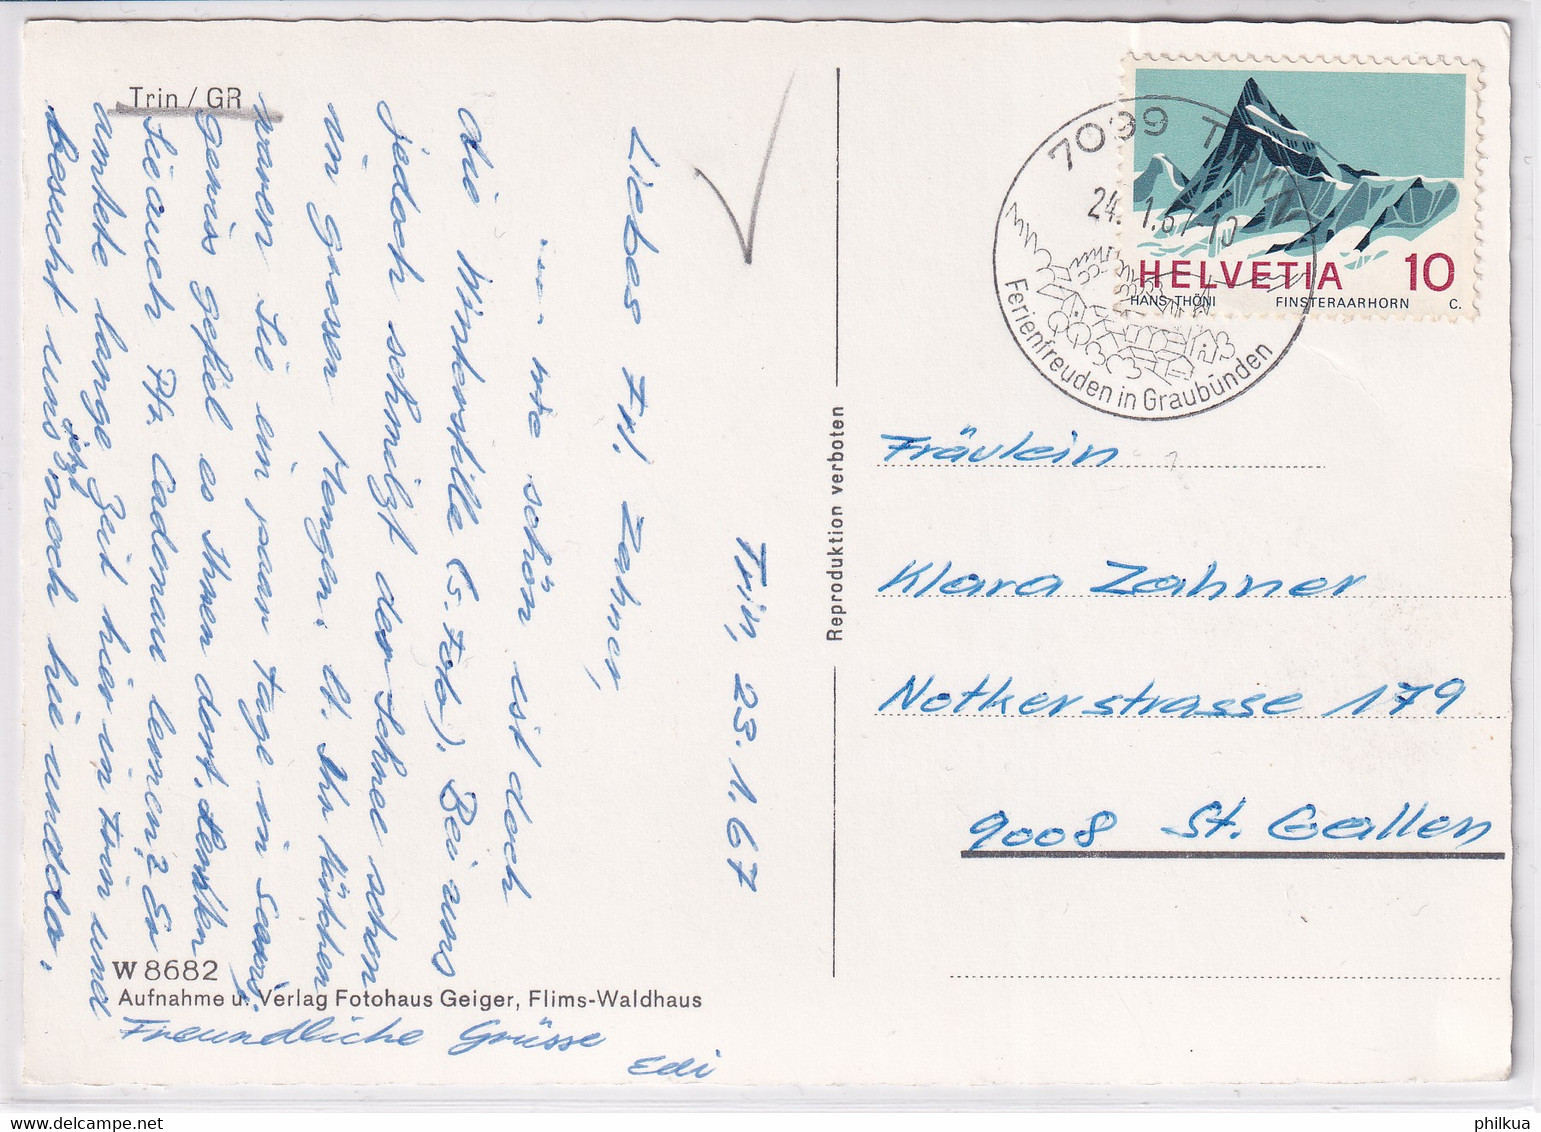 Trin / GR
Trin, 23.1.67
Liebes Frl. Zahner,
... wie schön ist doch
die Winterstille (s. Foto). Bei uns
jedoch schmilzt der Schnee schon
in grossen Mengen. U. Ihr Kärtchen
waren Sie ein paar Tage in
gewiss gefiel es Ihnen dort. Lernten
Sie auch Pfr. Cadonau kennen? Er
amtete lange Zeit hier in Trin und
besucht uns jetzt noch hie und da.
Freundliche Grüsse
Edi
W 8682
Aufnahme u. Verlag Fotohaus Geiger, Flims-Waldhaus
Reproduktion verboten
7099 TRIN
24. 1.67-10
Ferienfreuden in Graubünden
HELVETIA 10
HANS THÖNI FINSTERAARHORN C.
Fräulein
Klara Zahner
Notkerstrasse 179
9008 St. Gallen
philkua